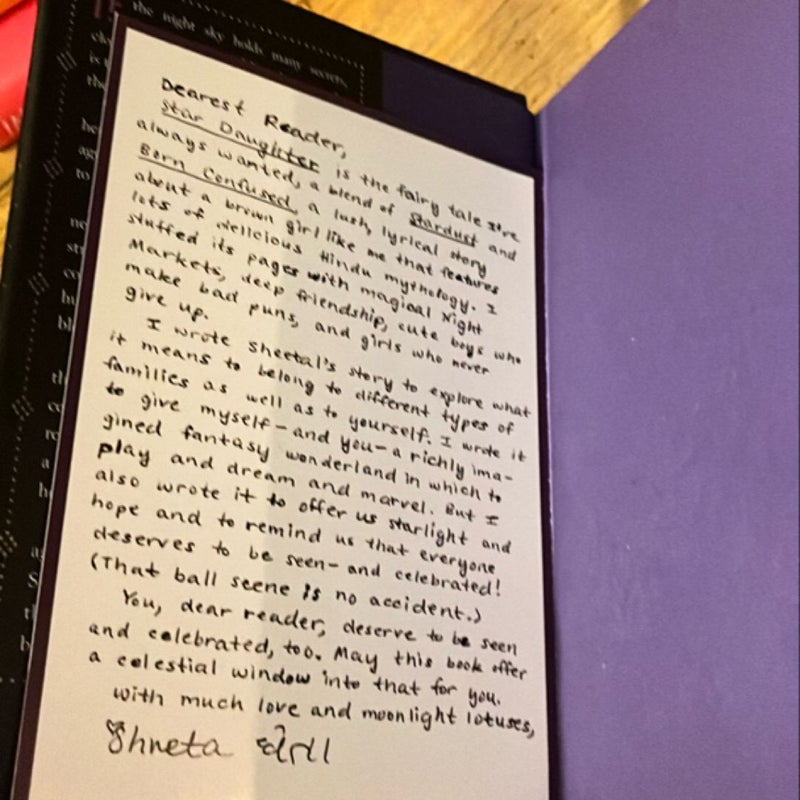 the night sky holds many secrets,
Dearest Reader,
Star Daughter is the fairy tale I've
always wanted, a blend of Stardust and
Born Confused, a lush, lyrical story
about a brown girl like me that features
lots of delicious Hindu mythology. I
stuffed its pages with magical Night
Markets, deep friendship, cute boys who
make bad puns, and girls who never
give up.
I wrote Sheetal's story to explore what
it means to belong to different types of
families as well as to yourself. I wrote it
to give myself—and you—a richly ima-
gined fantasy wonderland in which to
play and dream and marvel. But I
also wrote it to offer us starlight and
hope and to remind us that everyone
deserves to be seen—and celebrated!
(That ball scene is no accident.)
You, dear reader, deserve to be seen
and celebrated, too. May this book offer
a celestial window into that for you.
with much love and moonlight lotuses,